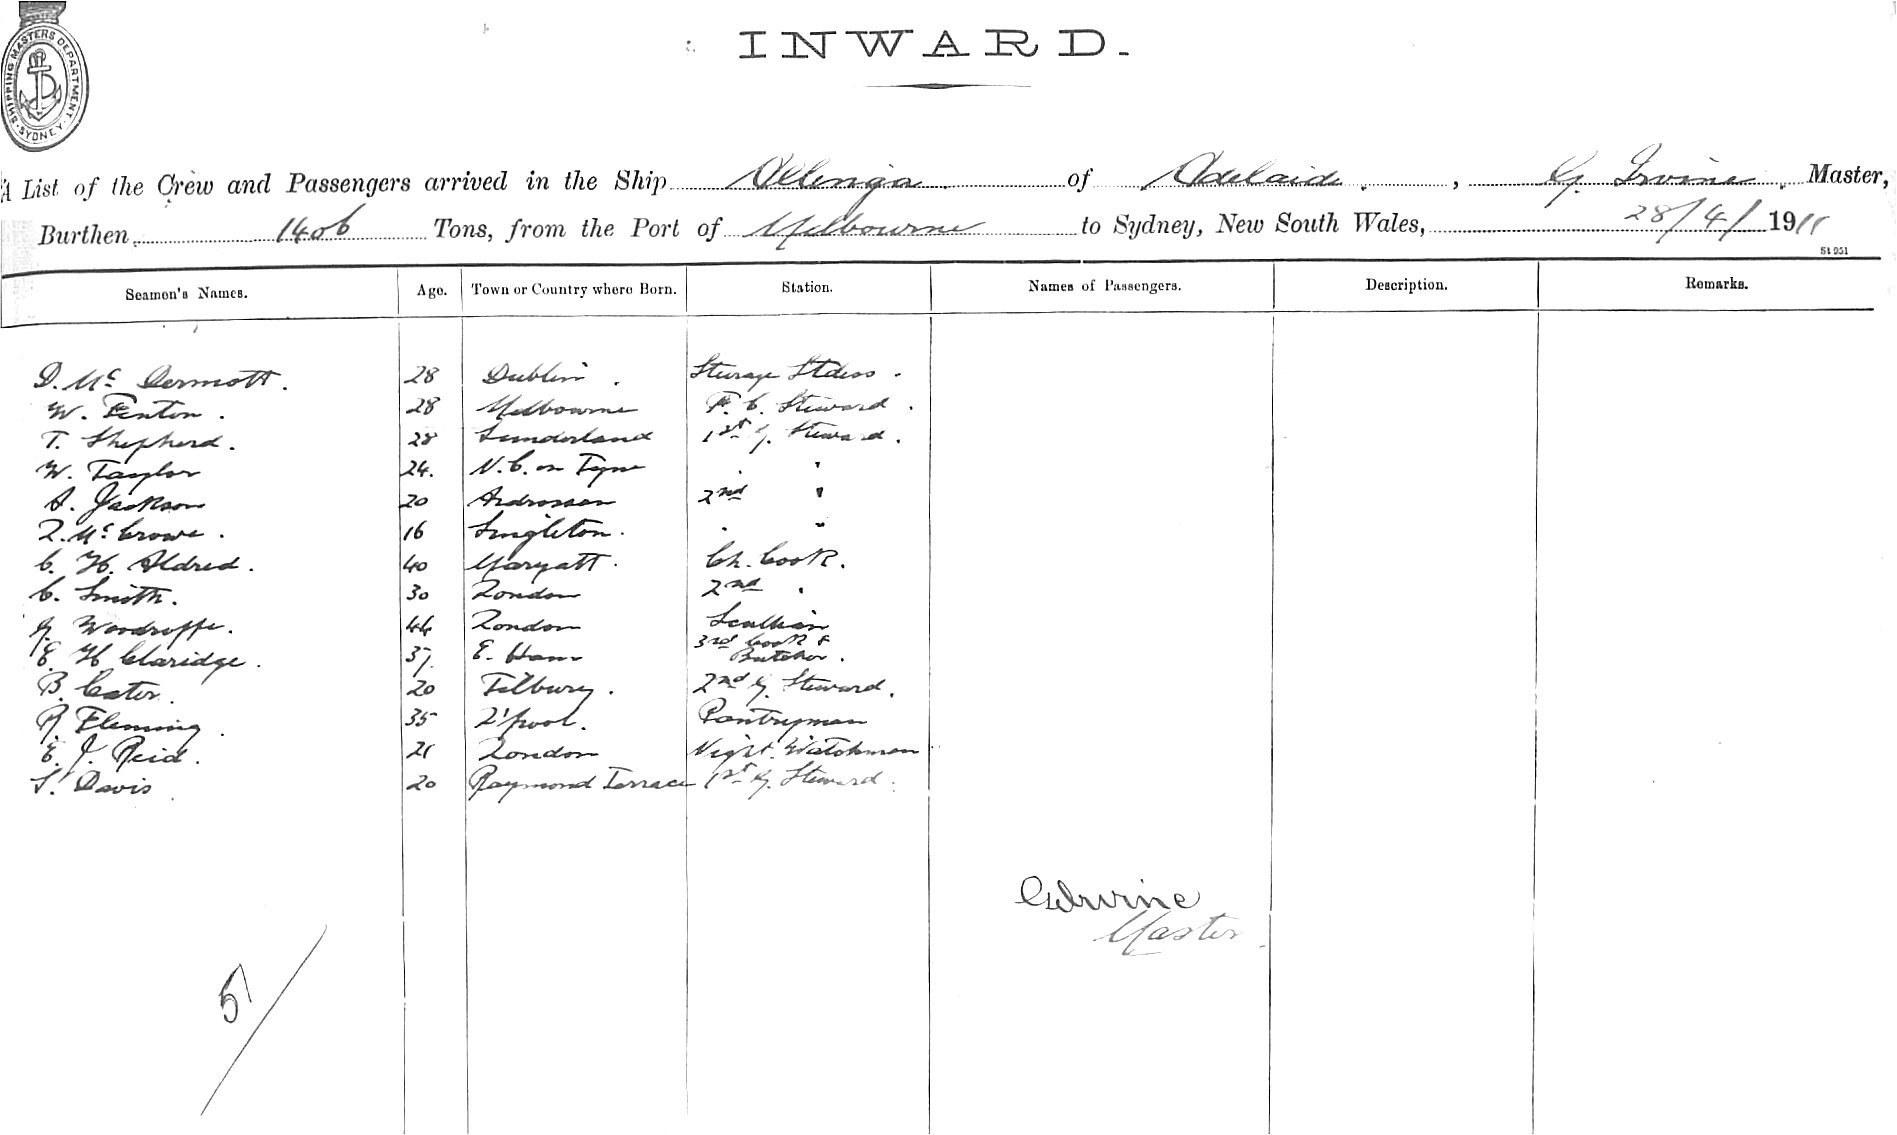 SHIPPING MASTERS DEPARTMENT. SYDNEY.
INWARD.
A List of the Crew and Passengers arrived in the Ship Allinga of Adelaide, G. Irvine, Master,
Burthen 1406 Tons, from the Port of Melbourne to Sydney, New South Wales, 28/4/1911
St 951
Seamen's Names. Age. Town or Country where Born. Station. Names of Passengers. Description. Remarks.
D. McDermott. 28 Dublin. Sturage Stdess.
W. Fenton. 28 Melbourne F. C. Steward.
T. Shepherd. 28 Sunderland 1st G. Steward.
W. Taylor 24. N. C. on Tyne " "
A. Jackson 20 Ardrossan 2nd "
L. McCrowe. 16 Singleton. " "
C. H. Aldred. 40 Maryatt. Ch. Cook.
C. Smith. 30 London 2nd "
G. Woodroffe. 44 London Scullion
E. H Claridge. 37. E. Ham 3rd Cook &
Butcher.
B. Cater. 20 Tilbury. 2nd G. Steward.
R. Fleming. 35 L'pool. Pantryman
E. J. Reid. 21 London Night Watchman
S. Davis. 20 Raymond Terrace 1st G. Steward.
G Irvine
Master.
51